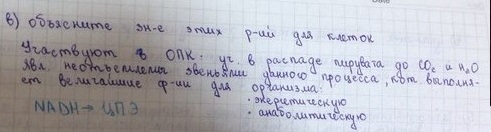 в) объясните зн-е этих р-ий для клеток
Участвуют в ОПК. уч. в распаде пирувата до CO₂ и H₂O
явл. неотъемлемы звеньями данного процесса, кот. выполня-
ет величайшие ф-ии для организма:
· энергетическую
NADH → ЦПЭ
· анаболитическую